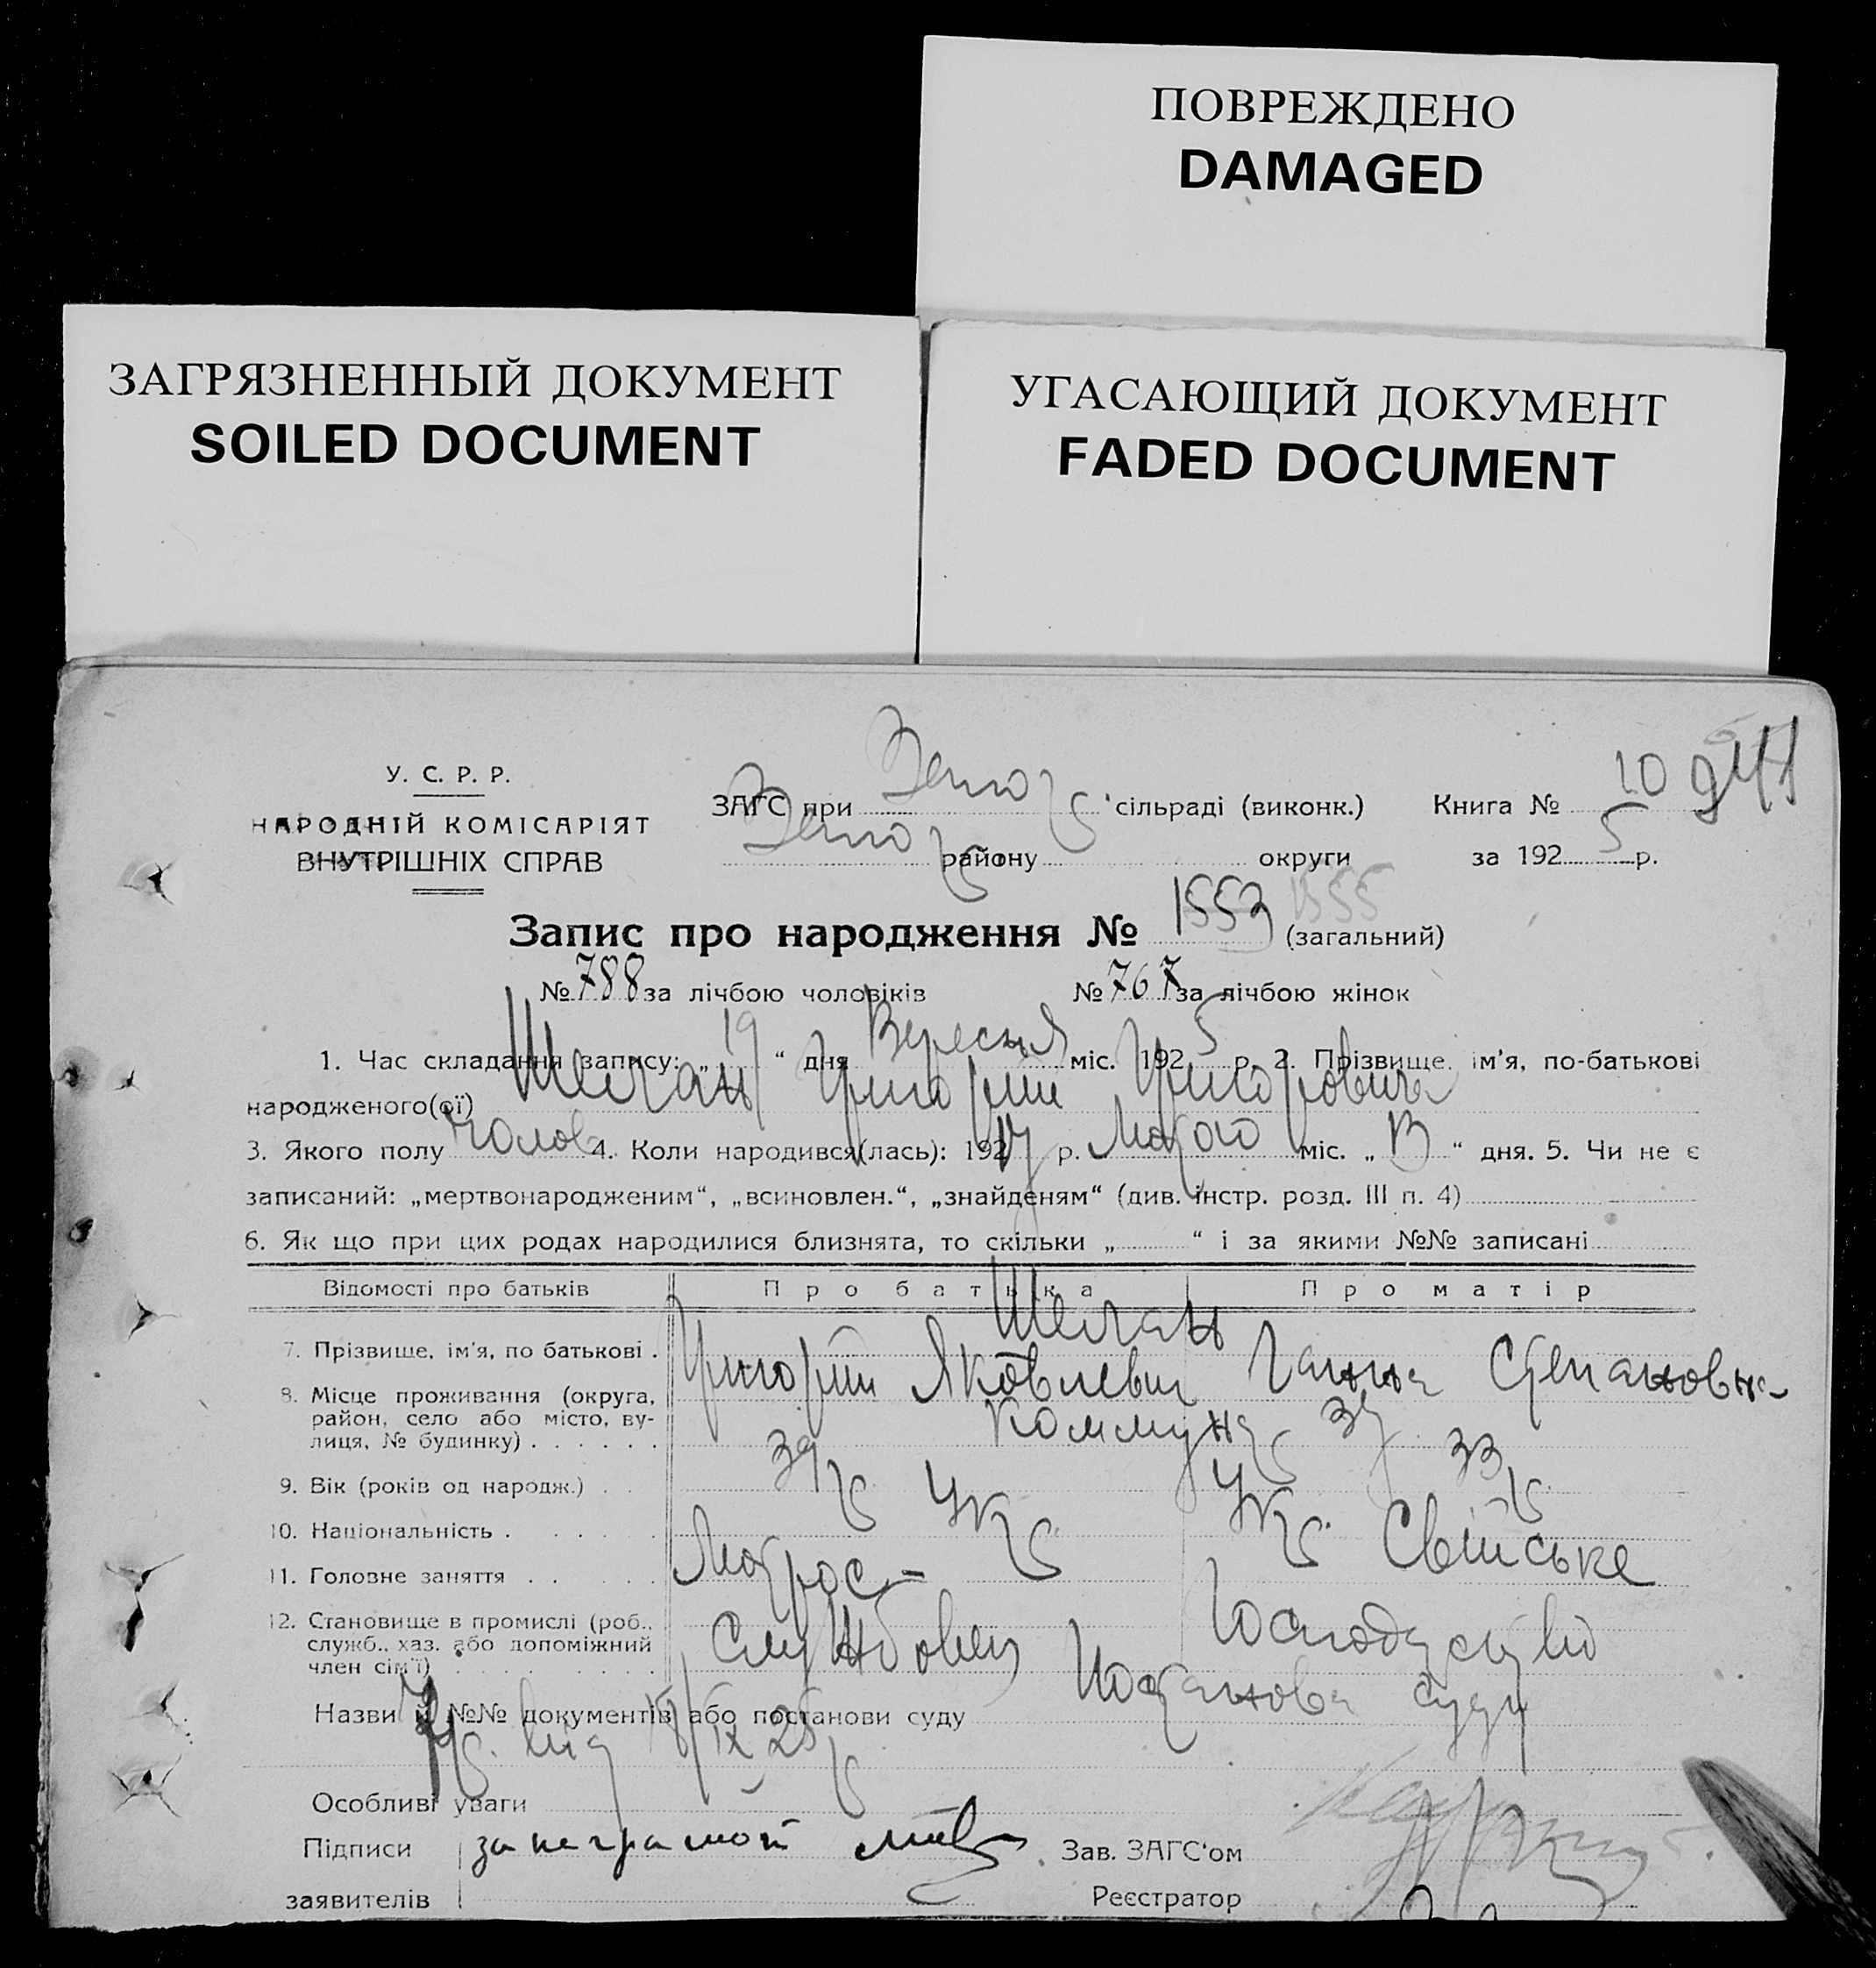 ПОВРЕЖДЕНО
DAMAGED
ЗАГРЯЗНЕННЫЙ ДОКУМЕНТ
SOILED DOCUMENT
УГАСАЮЩИЙ ДОКУМЕНТ
FADED DOCUMENT
У. С. Р. Р.
НАРОДНІЙ КОМІСАРІЯТ
ВНУТРІШНІХ СПРАВ
ЗАГС при сільраді (виконк.) Книга № 10
району округи за 1925 р.
Запис про народження № 1553 1555 (загальний)
№ 788 за лічбою чоловіків № 767 за лічбою жінок
1. Час складання запису: „19“ дня Вересня міс. 1925 р. 2. Прізвище, ім'я, по-батькові
народженого(ої) Григорій Григорович
3. Якого полу Чолов 4. Коли народився(лась): 192 р. міс. „ “ дня. 5. Чи не є
записаний: „мертвонародженим“, „всиновлен.“, „знайденям“ (див. інстр. розд. III п. 4)
6. Як що при цих родах народилися близнята, то скільки „ “ і за якими №№ записані
Відомості про батьків Про батька Про матір
7. Прізвище, ім'я, по батькові . Григорій Яковлевич Ганна Степановна
8. Місце проживання (округа, район, село або місто, вулиця, № будинку) . . . . . . Коммун
9. Вік (років од народж.) . . 39 33
10. Національність . . . . . Укр Укр.
11. Головне заняття . . . . . Матрос Свійське
12. Становище в промислі (роб., служб., хаз. або допоміжний член сім'ї) . . . . . . . . Службовец Господарство
Назви й №№ документів або постанови суду Постанова суду
від IX 25
Особливі уваги
Підписи за неграмот Зав. ЗАГС'ом
заявителів Реєстратор